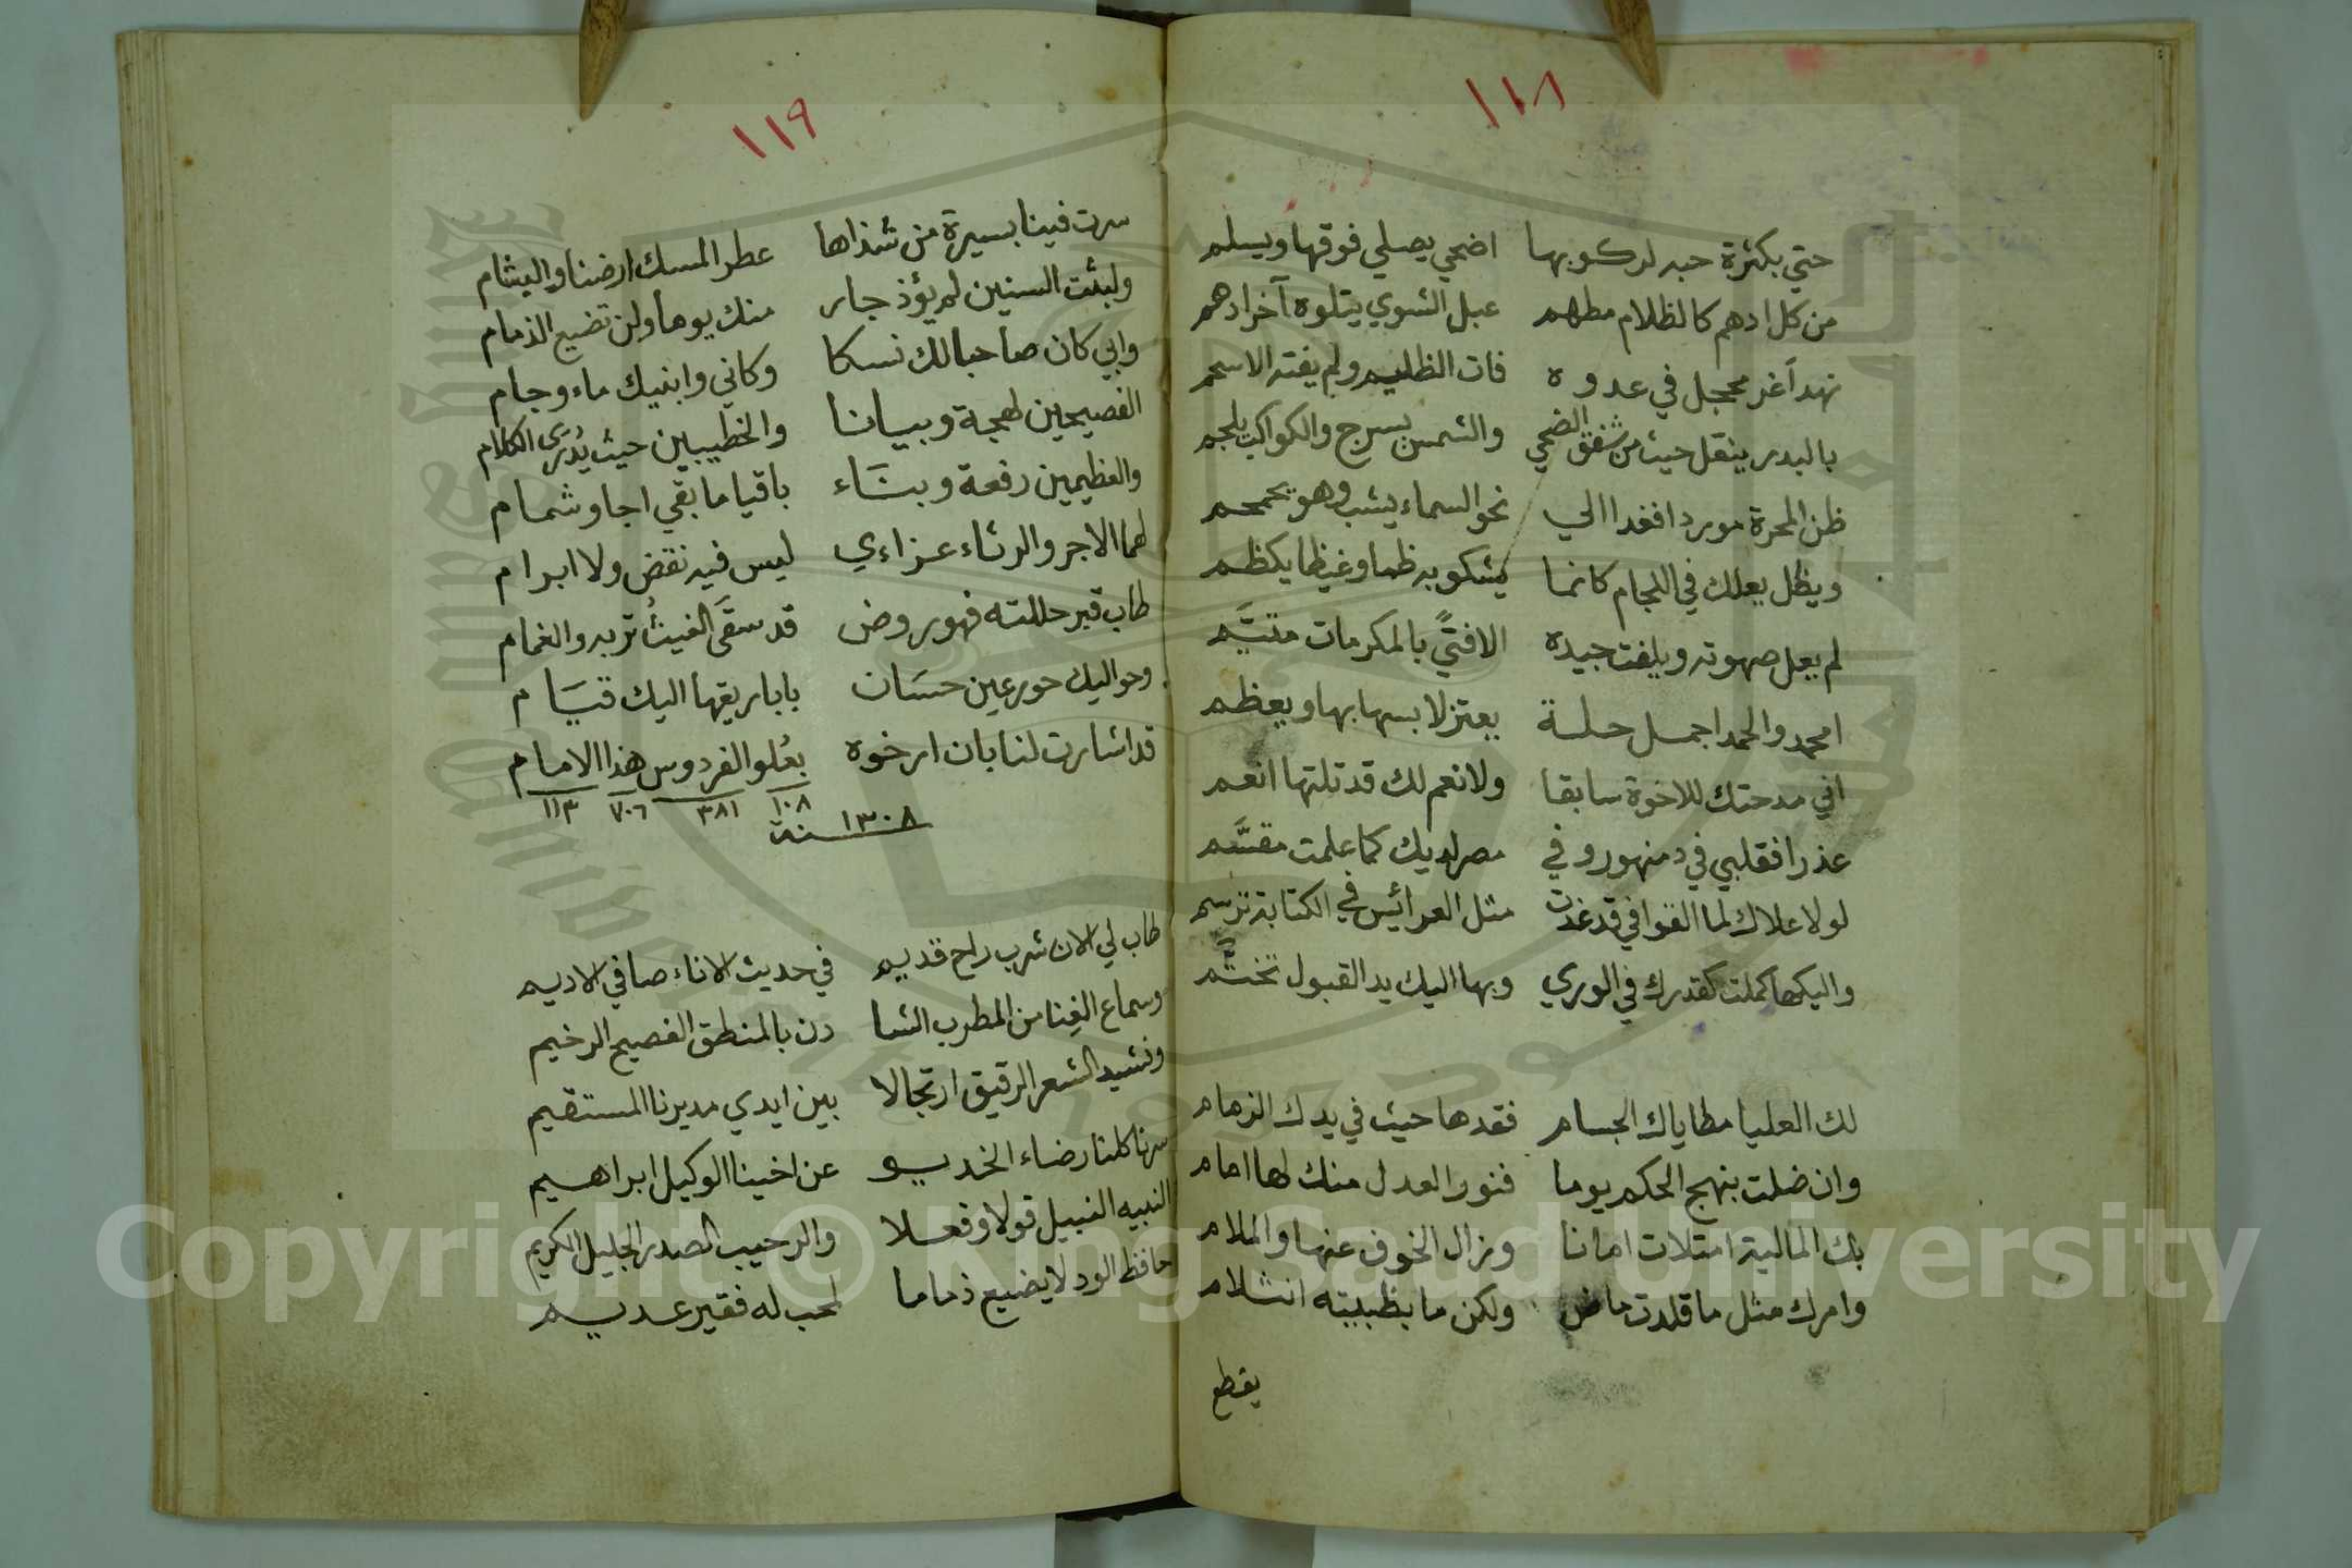 ١١٨
حتي بكثرة حبه لركوبها اضحي يصلي فوقها ويسلم
من كل ادهم كالظلام مطهم عبل الشوي يتلوه آخر ادهم
نهد أغر محجل في عدوه فات الظليم ولم يفته الاسحم
بالبدر ينقل حيث من شفق الضحي والشمس يسرج والكواكب يلجم
ظن المجرة موردا فغدا الي نحو السماء يشب وهو يحمحم
ويظل يعلك في اللجام كانما يشكو به ظما وغيظا يكظم
لم يعل صهوته ويلفت جيده الا فتًي بالمكرمات متيَّم
امحمد والحمد اجمل حلة يعتز لابسها بها ويعظم
اني مدحتك للاخوة سابقا ولانعم لك قد تلتها انعم
عذرا فقلبي في دمنهور وفي مصر لديك كما علمت مقسَّم
لولا علاك لما القوافي قد غدت مثل العرائس في الكتابة ترسم
واليكها كملت كقدرك في الوري وبها اليك يد القبول تختَّم
لك العليا مطاياك الجسام فقدها حيث في يدك الزمام
وان ضلت بنهج الحكم يوما فنور العدل منك لها امام
بك المالية امتلات امانا وزال الخوف عنها والملام
وامرك مثل ما قلدت ماض ولكن ما بظبيته انثلام
يقطع
١١٩
سرت فينا بسيرة من شذاها عطر المسك ارضنا والبشام
ولبثت السنين لم يؤذ جار منك يوما ولن تضيع الذمام
وابي كان صاحبا لك نسكا وكاني وابنيك ماء وجام
الفصيحين لهجة وبيانا والخطيبين حيث يُدرَى الكلام
والعظيمين رفعة وبنَاء باقيا ما بقي اجا وشمام
لهما الاجر والرثاء عزاءي ليس فيه نقض ولا ابرام
طاب قبر حللته فهو روض قد سقَى الغيثُ تربه والغمام
وحواليك حور عين حسَان باباريقها اليك قيَام
قد اشارت لنا بان ارخوه بعُلو الفردوس هذا الامام
١٠٨ ٣٨١ ٧٠٦ ١١٣
١٣٠٨ سنة
طاب لي الان شرب راح قديم في حديث الاناء صافي الاديم
وسماع الغِنا من المطرب الشا دن بالمنطق الفصيح الرخيم
ونشيد الشعر الرقيق ارتجالا بين ايدي مديرنا المستقيم
سرنا كلنا رضاء الخديو عن اخينا الوكيل ابراهيم
النبيه النبيل قولا وفعلا والرحيب الصدر الجليل الكريم
حافظ الود لا يضيع ذماما لمحب له فقير عديم
Copyright © King Saud University